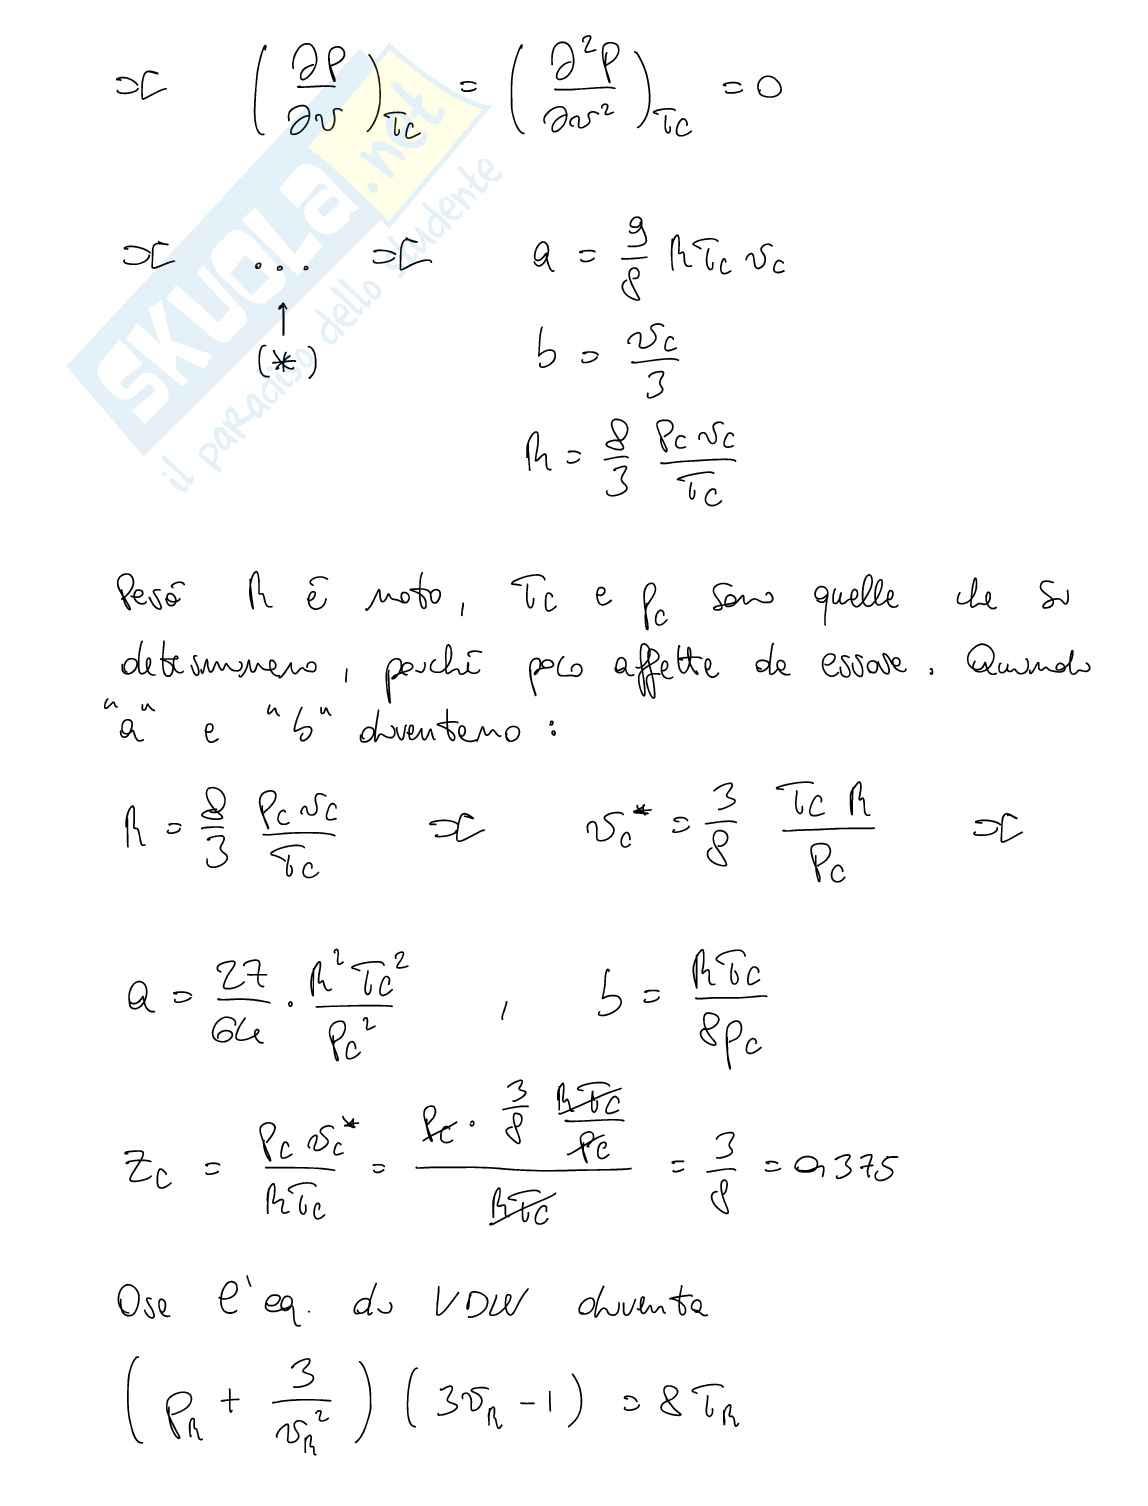 ⇒ (∂P/∂v)_Tc = (∂²P/∂v²)_Tc = 0
⇒ ... ⇒ a = 9/8 R Tc vc
↑
(*)
b = vc/3
R = 8/3 Pc vc/Tc
Però R è noto, Tc e Pc sono quelle che si
determinano, perché poco affette da errore. Quindi
"a" e "b" diventano:
R = 8/3 Pc vc/Tc ⇒ vc* = 3/8 Tc R/Pc ⇒
a = 27/64 · R² Tc²/Pc² , b = R Tc/8Pc
Zc = Pc vc*/R Tc = Pc · 3/8 R Tc/Pc / R Tc = 3/8 = 0,375
Ora l'eq. di VDW diventa
(PR + 3/vR²) (3vR - 1) = 8 TR
SKUOLA.net
il paradiso dello studente